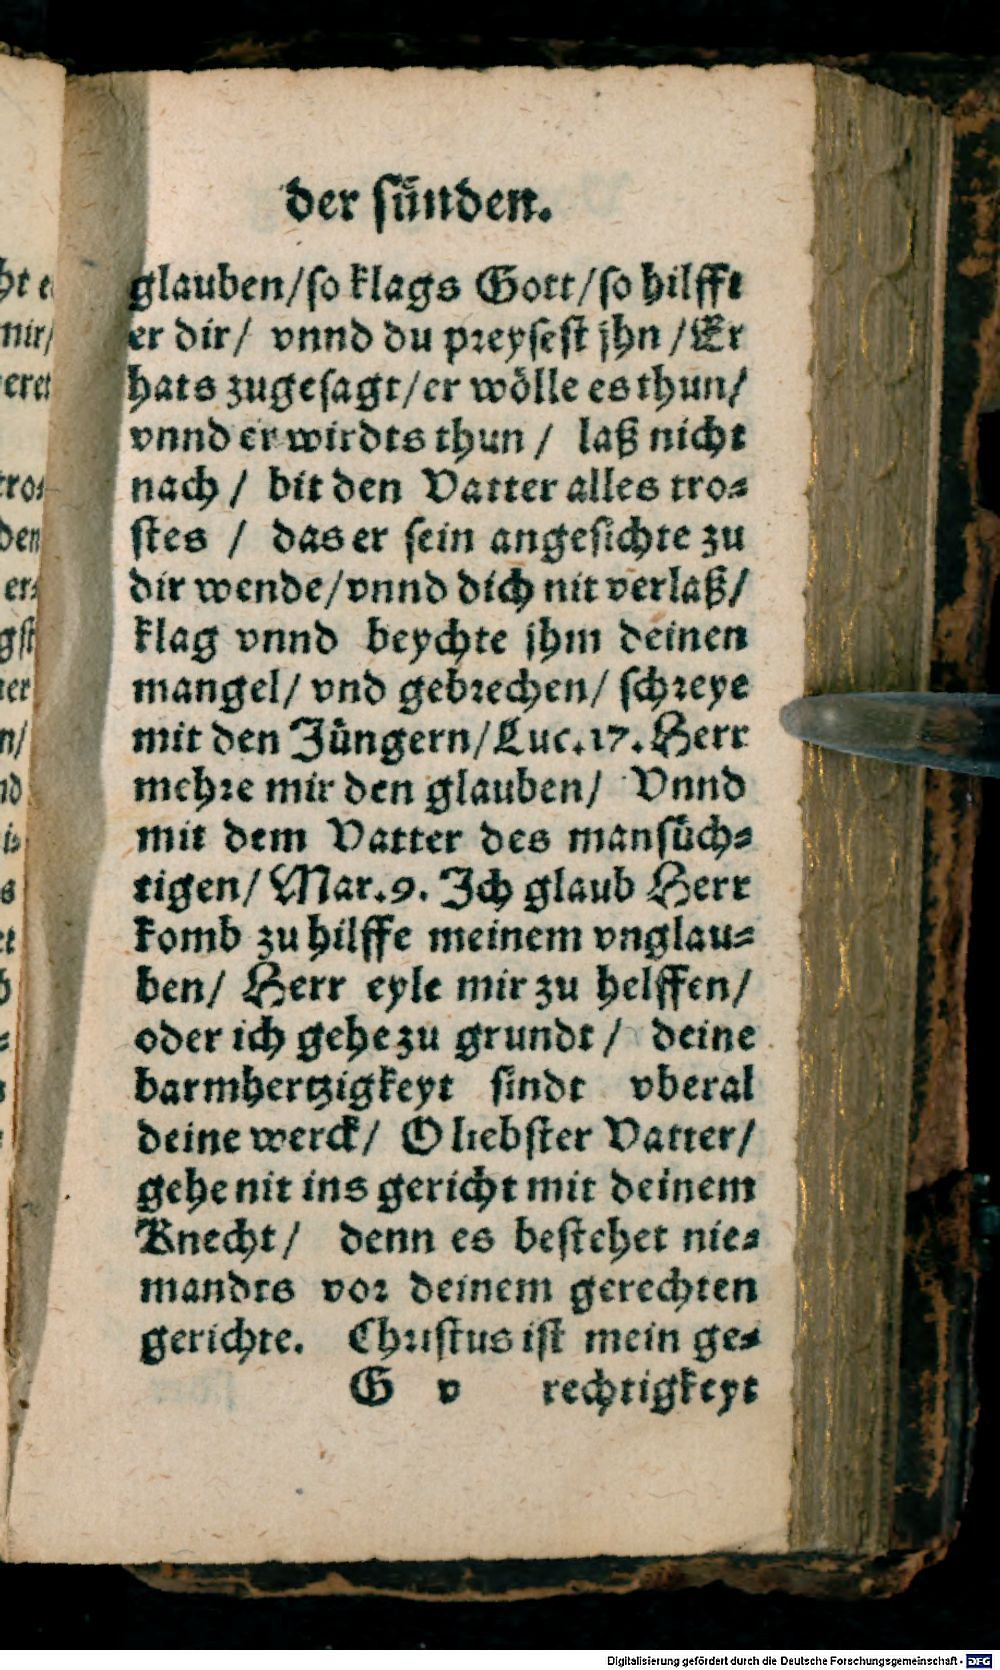 der sünden.
glauben/so klags Gott/so hilfft
er dir/ vnnd du preysest jhn /Er
hats zugesagt/er wölle es thun/
vnnd er wirdts thun / laß nicht
nach / bit den Vatter alles tro-
stes / das er sein angesichte zu
dir wende/vnnd dich nit verlaß/
klag vnnd beychte jhm deinen
mangel/ vnd gebrechen/ schreye
mit den Jüngern/Luc.17. Herr
mehre mir den glauben/ Vnnd
mit dem Vatter des mansüch-
tigen/ Mar.9. Ich glaub Herr
komb zu hilffe meinem vnglau-
ben/ Herr eyle mir zu helffen/
oder ich gehe zu grundt / deine
barmhertzigkeyt sindt vberal
deine werck/ O liebster Vatter/
gehe nit ins gericht mit deinem
Knecht/ denn es bestehet nie-
mandts vor deinem gerechten
gerichte. Christus ist mein ge-
G v rechtigkeyt
Digitalisierung gefördert durch die Deutsche Forschungsgemeinschaft - DFG